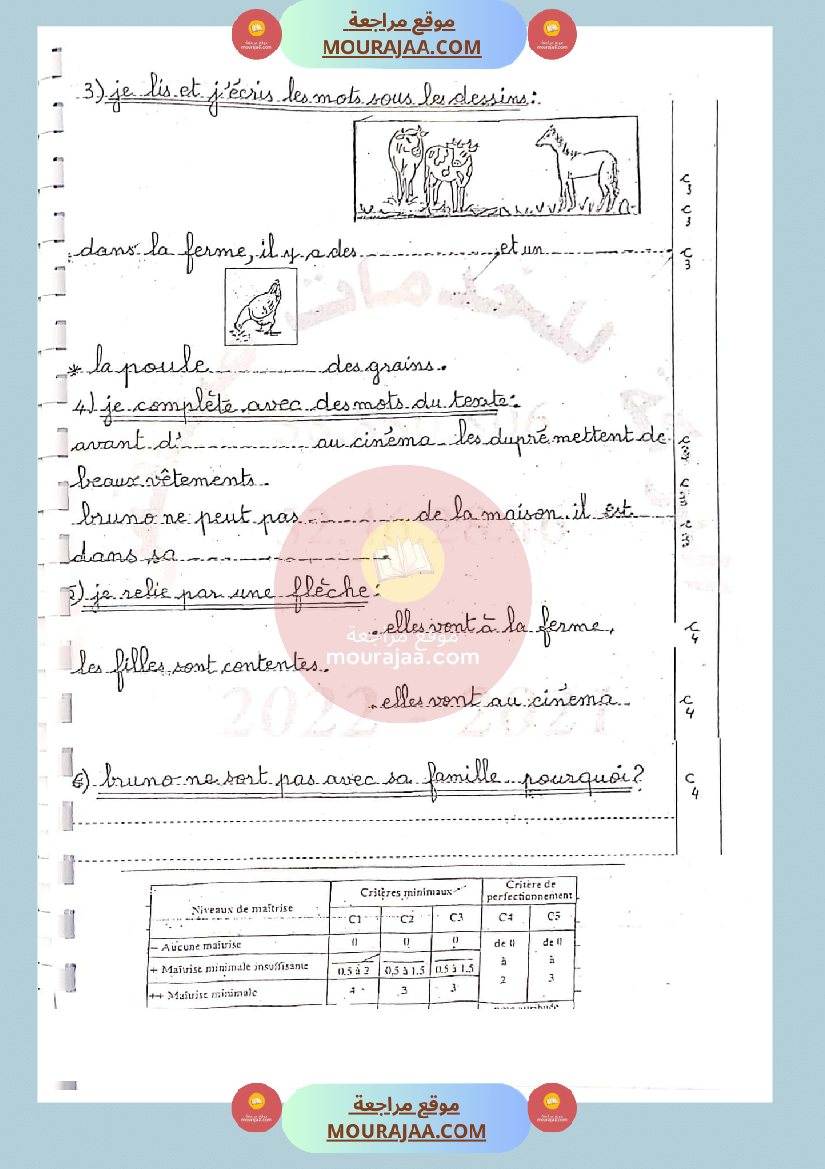 موقع مراجعة
MOURAJAA.COM
3) je lis et j'écris les mots sous les dessins:
dans la ferme, il y a des ............ et un ............
* la poule ............ des grains.
4) je complète avec des mots du texte:
avant d'............ au cinéma les dupré mettent de
beaux vêtements.
bruno ne peut pas ............ de la maison il est
dans sa ............
5) je relie par une flèche:
. elles vont à la ferme.
les filles sont contentes.
. elles vont au cinéma.
6) bruno ne sort pas avec sa famille pourquoi?
C3
C3
C3
C4
C4
C4
موقع مراجعة
mourajaa.com
2022 - 2021
Niveaux de maîtrise Critères minimaux Critère de perfectionnement
C1 C2 C3 C4 C5
- Aucune maîtrise 0 0 0 de 0 de 0
+ Maîtrise minimale insuffisante 0.5 à 2 0,5 à 1.5 0.5 à 1.5 à 2 à 3
++ Maîtrise minimale 4 3 3
موقع مراجعة
MOURAJAA.COM